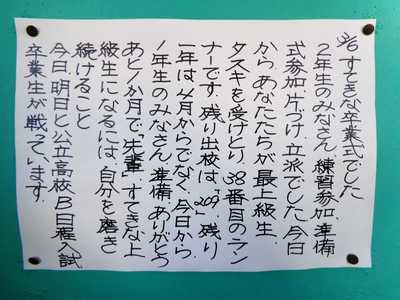 3/6 すてきな卒業式でした
2年生のみなさん、練習参加、準備
式参加、片づけ、立派でした。今日
から、あなたたちが最上級生。
タスキを受けとり、38番目のラン
ナーです。残り出校は、"209"。残り
一年は4月からでなく、今日から
1年生のみなさん、準備、ありがとう
あと1ヶ月で、"先輩"すてきな上
級生になるには、自分を磨き
続けること
今日、明日と公立高校B日程入試
卒業生が戦っています。